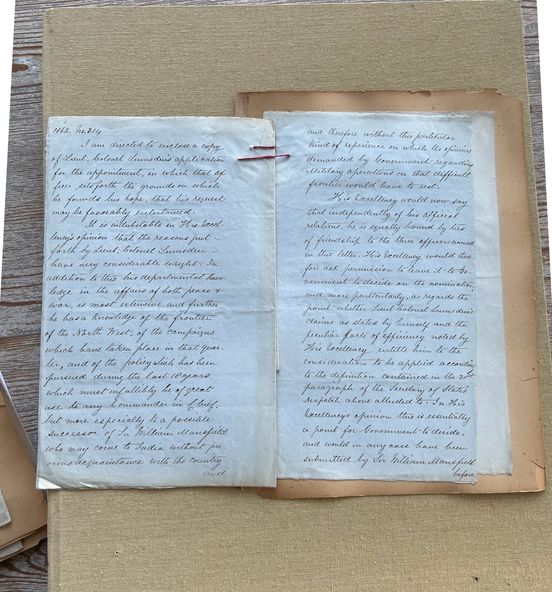 1862. No. 314
I am directed to enclose a copy
of Lieut. Colonel Lumsden's application
for the appointment, in which that of-
ficer sets forth the grounds on which
he founds his hope, that his request
may be favorably entertained.
It is indubitable in His Excel-
lency's opinion that the reasons put
forth by Lieut. Colonel Lumsden
have very considerable weight. In
addition to this his departmental know-
ledge, in the affairs of both peace &
war, is most extensive, and further
he has a knowledge of the frontier
of the North West, of the campaigns
which have taken place in that quar-
ter, and of the policy which has been
pursued during the last 18 years,
which must infallibly be of great
use to any Commander in Chief,
but more especially to a possible
successor of Sir William Mansfield
who may come to India without pre-
vious acquaintance with the country
and
and therefore without this particular
kind of experience on which the opinions
demanded by Government regarding
Military operations on that difficult
frontier would have to rest.
His Excellency would now say
that independently of his official
relations, he is equally bound by ties
of friendship to the three officers named
in this letter. His Excellency would there
fore ask permission to leave it to Go
vernment to decide on the nomination,
and more particularly, as regards the
point whether Lieut. Colonel Lumsden's
claims as stated by himself and the
peculiar facts of efficiency noted by
His Excellency entitle him to the
consideration to be applied according
to the definition contained in the
paragraph of the Secretary of State's
despatch above alluded to. In His
Excellency's opinion this is essentially
a point for Government to decide,
and would in any case have been
submitted by Sir William Mansfield
before